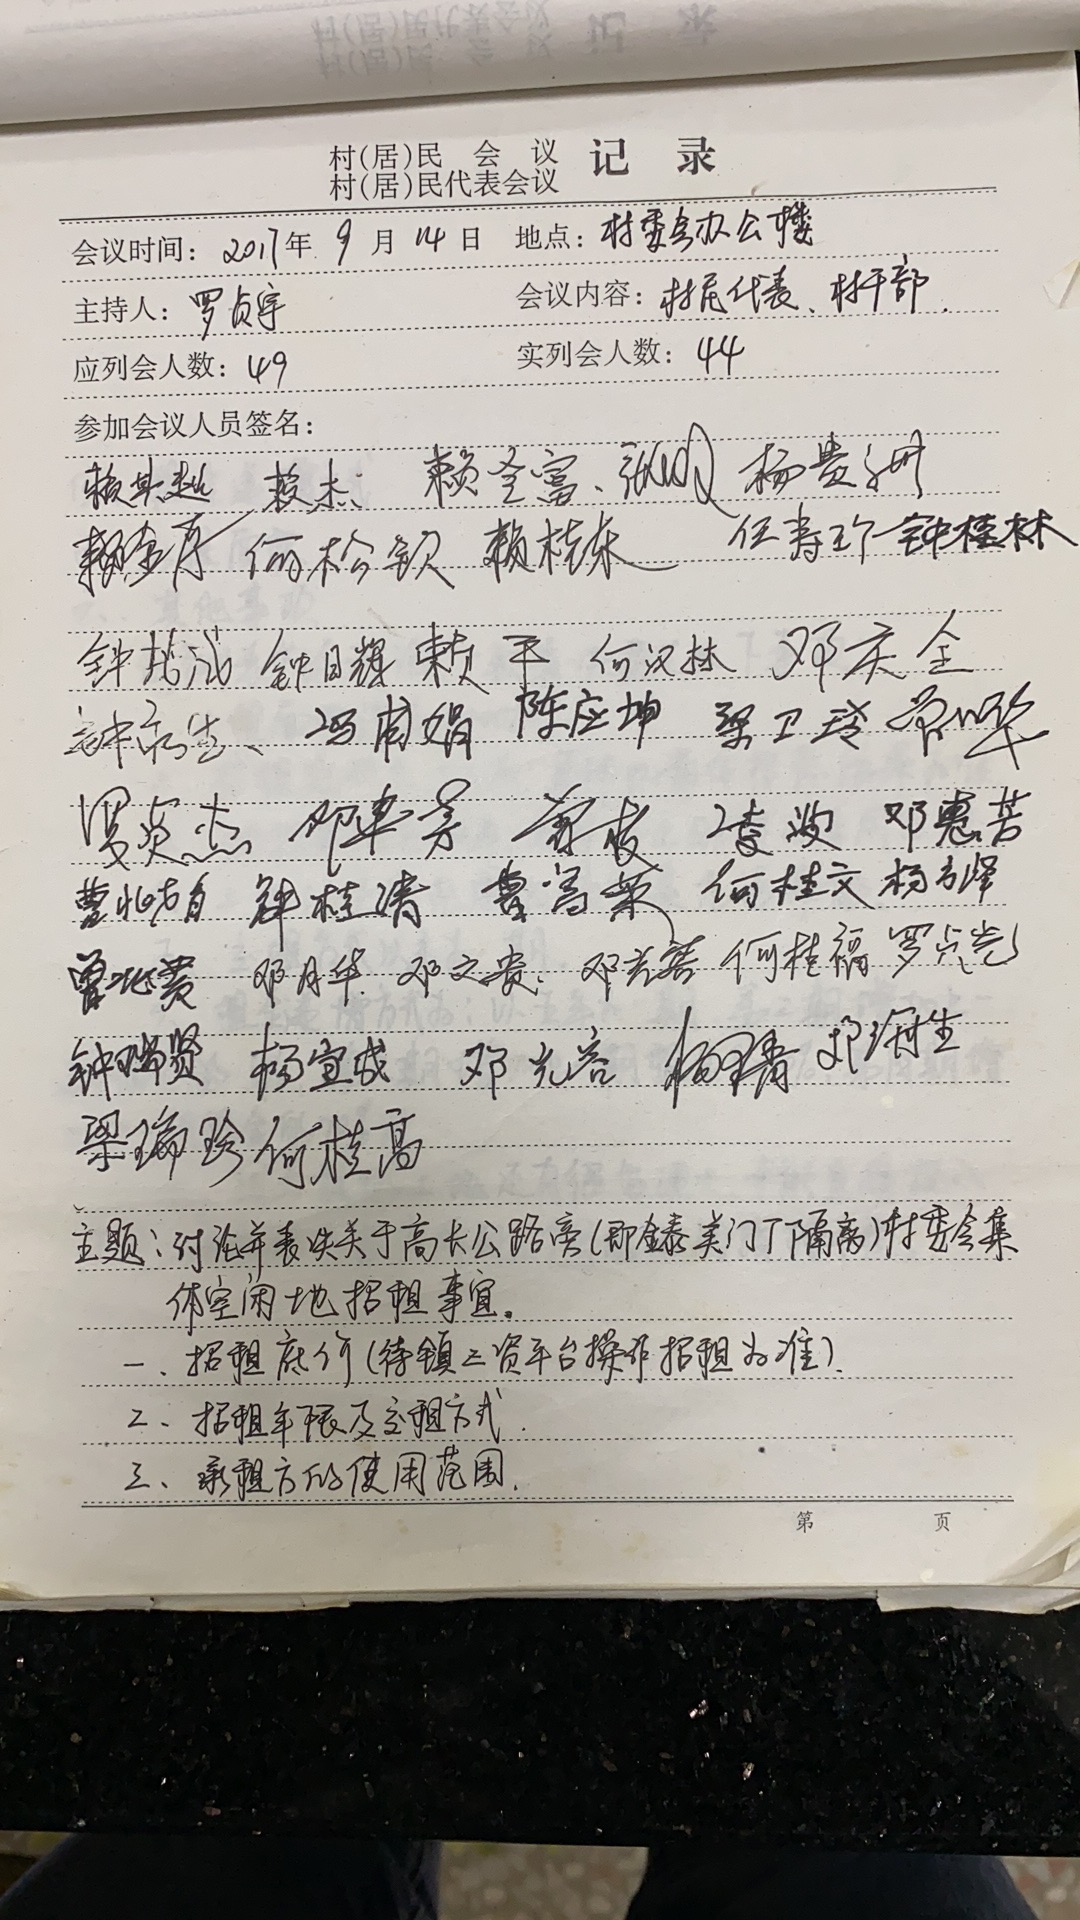 村(居)民 会 议
村(居)民代表会议 记 录
会议时间: 2017年 9 月 14日 地点: 村委会办公楼
主持人: 罗贞宇 会议内容: 村民代表、村干部.
应列会人数: 49 实列会人数: 44
参加会议人员签名:
赖其 赖杰 赖圣富、 杨贵
何松钦 赖桂东 伍寿珍 钟桂林
钟 钟日辉 赖平 何汉林 邓庆全
钟 冯 娟 陈应坤 梁卫玲
罗贞杰 邓 芳 李波 邓惠芳
曹 钟桂清 曹富荣 何桂文 杨
曾 贵 邓月华 邓文贵. 邓 何桂福 罗贞光
钟瑞贤 杨宜成 邓光容 杨 邓 生
梁瑞珍 何桂高
主题: 讨论并表决关于高长公路旁(即金泰美门厂隔离)村委会集
体空闲地招租事宜。
一、招租底价(待镇三资平台操作招租为准).
2、招租年限及交租方式.
三、承租方的使用范围.
第 页